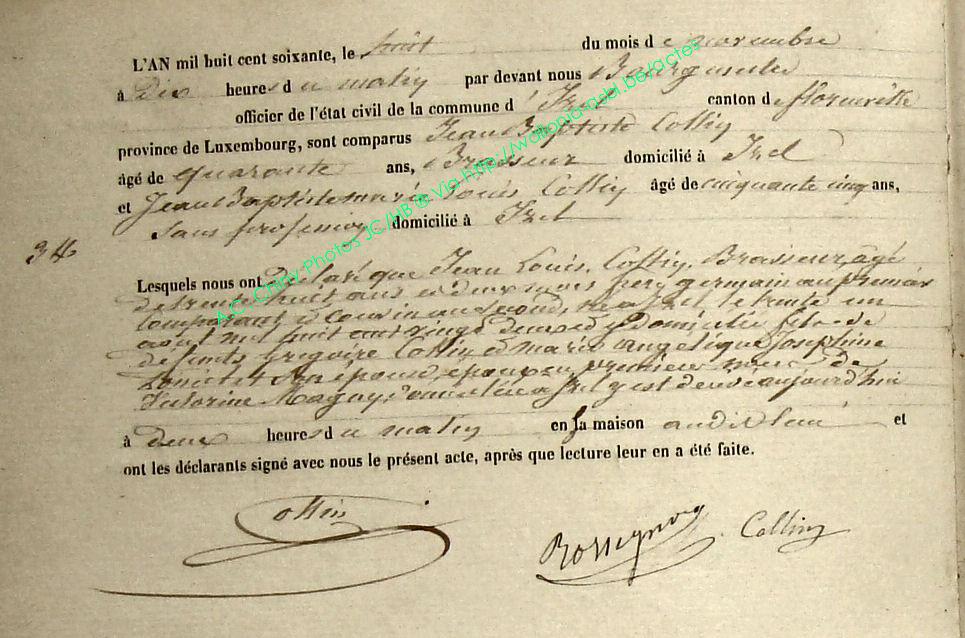 L'AN mil huit cent soixante, le huit du mois de novembre
à Dix heures du matin par devant nous Bourgmestre
officier de l'état civil de la commune d'Izel canton de florenville
province de Luxembourg, sont comparus Jean Baptiste Collin
âgé de quarante ans, Brasseur domicilié à Izel
et Jean Baptiste marie Louis Collin âgé de cinquante cinq ans,
sans profession domicilié à Izel
34
Lesquels nous ont Déclaré que Jean Louis Collin, Brasseur, âgé
de trente huit ans et deux mois frère germain au premier
Comparant et Cousin au second, né à Izel le trente un
août mil huit cent vingt deux et y Domicilié fils de
défunts Grégoire Collin et marie angélique Josephine
son épouse, époux en premières noces de
Victorine Magny domiciliée à Izel y est décédé aujourd'hui
à deux heures du matin en sa maison audit lieu et
ont les déclarants signé avec nous le présent acte, après que lecture leur en a été faite.
Collin
Rossignon Collin
A.C. Chiny Photos JC/HB @ Via http://wallonia-asbl.be/actes